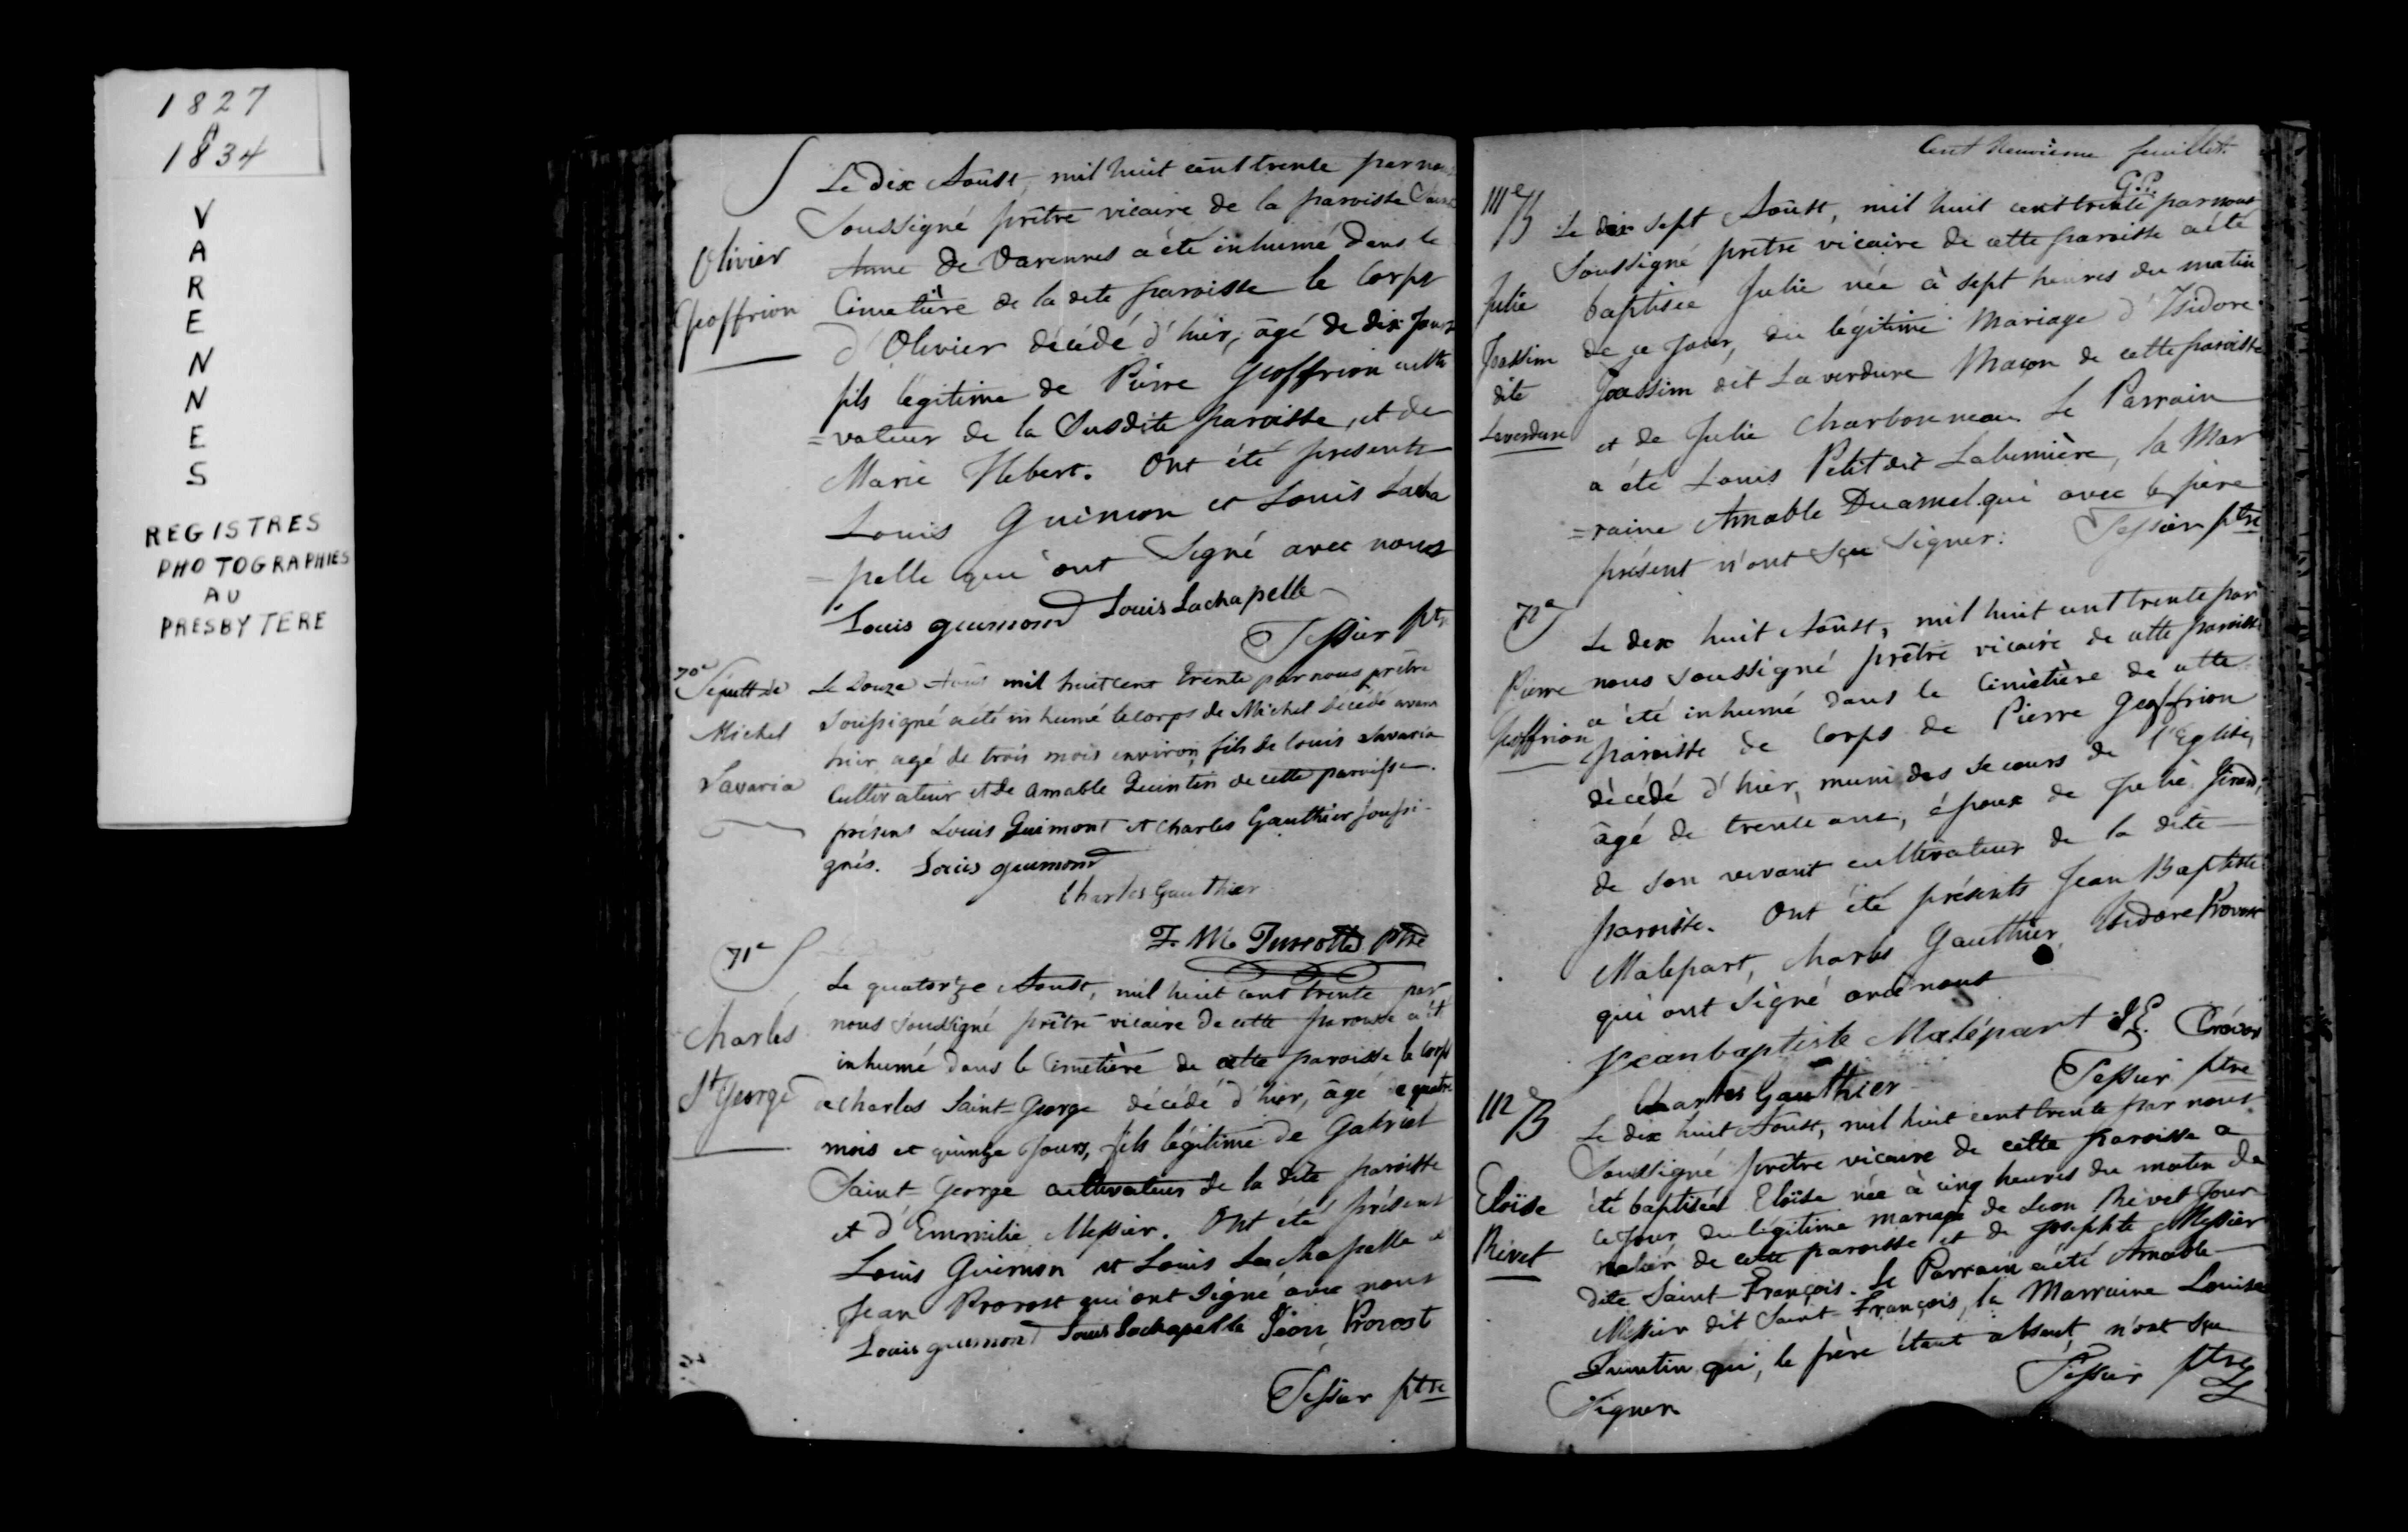 1827
A
1834
V
A
R
E
N
N
E
S
REGISTRES
PHOTOGRAPHIES
AU
PRESBYTERE
S
Olivier
Geoffrion
Le dix Aoûst, mil huit cent trente par nous
Soussigné prêtre vicaire de la paroisse Sainte
Anne de Varennes a été inhumé dans le
Cimetière de la dite paroisse le Corps
d'Olivier décédé d'hier, âgé de dix jours
fils légitime de Pierre Geoffrion culti
=vateur de la Susdite paroisse, et de
Marie Hebert. Ont été presents
Louis Guimon et Louis Lacha
=pelle qui ont Signé avec nous
Louis guimond Louis Lachapelle
Tessier ptre
70e
Sepult de
Michel
Savaria
Le Douze Août mil huit cent trente par nous prêtre
soussigné a été inhumé le corps de Michel décédé avant
hier agé de trois mois environ, fils de louis Savaria
Cultivateur et de Amable Quintin de cette paroisse.
présens Louis Guimont et Charles Gauthier soussi-
gnés. Louis guimond
Charles Gauthier
F. M. Turcotte ptre
71e S
Charles
St George
Le quatorze Aoust, mil huit cent trente par
nous soussigné prêtre vicaire de cette paroisse a ét
inhumé dans le Cimetière de cette paroisse le corps
de charles Saint-George décédé d'hier, âgé de quatre
mois et quinze jours, fils légitime de Gabriel
Saint-George cultivateur de la dite paroisse
et d'Emmilie Messier. Ont été présent
Louis Guimon et Louis Lachapelle et
Jean Provost qui ont Signé avec nous
Louis guimond Louis Lachapelle Jean Provost
Tessier ptre
Cent Neuvième feuillet.
G.P.
111e B
Julie
Joassim
dite
Laverdure
Le dix sept Aoûst, mil huit cent trente par nous
Soussigné prêtre vicaire de cette paroisse a été
baptisée Julie née à sept heures du matin
de ce jour, du légitime Mariage d'Isidore
Joassim dit Laverdure Maçon de cette paroisse
et de Julie Charbonneau Le Parrain
a été Louis Petit dit Lalumière, la Mar
=raine Amable Duamel qui avec le père
présent n'ont Sçu Signer. Tessier ptre
72e S
Pierre
Geoffrion
Le dix huit Aoûst, mil huit cent trente par
nous soussigné prêtre vicaire de cette paroisse
a été inhumé dans le Cimètière de cette
paroisse le Corps de Pierre Geoffrion
décédé d'hier, muni des secours de l'Eglise,
âgé de trente ans, époux de Julie
de son vivant cultivateur de la dite
paroisse. Ont été présents Jean Baptiste
Malepart, charles Gauthier, Isidore Provost
qui ont Signé avec nous
Jeanbaptiste Malépart
Charles Gauthier
Tessier ptre
112e B
Eloïse
Rivet
Le dix huit Aoûst, mil huit cent trente par nous
Soussigné prêtre vicaire de cette paroisse a
été baptisée Eloïse née à cinq heures du matin de
ce jour du légitime mariage de Leon Rivet Jour
nalier de cette paroisse et de Josephte Messier
dite Saint-François. Le Parrain a été Amable
Messier dit Saint-François, la Marraine Louise
Quintin qui, le père étant absent, n'ont Sçu
Signer
Tessier ptre